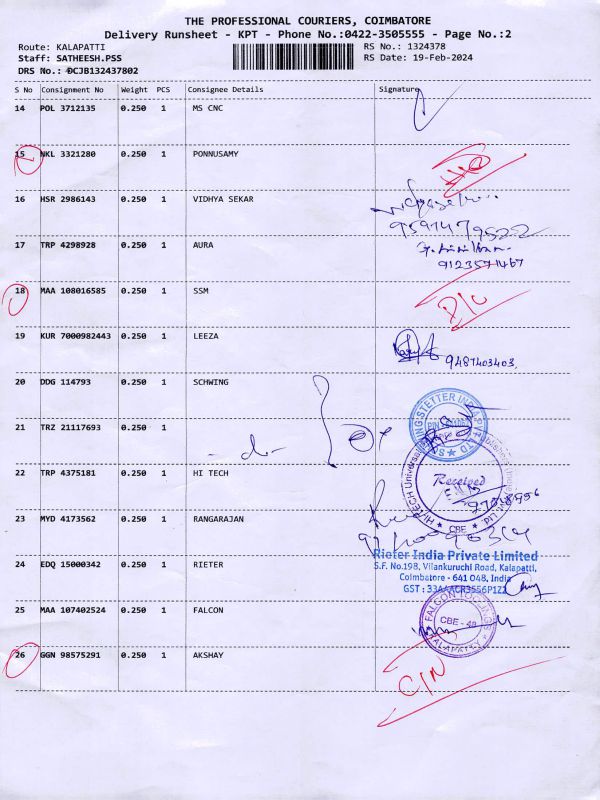 THE PROFESSIONAL COURIERS, COIMBATORE
Delivery Runsheet - KPT - Phone No.:0422-3505555 - Page No.:2
Route: KALAPATTI RS No.: 1324378
Staff: SATHEESH.PSS RS Date: 19-Feb-2024
DRS No.: DCJB132437802
S No Consignment No Weight PCS Consignee Details Signature
14 POL 3712135 0.250 1 MS CNC
15 NKL 3321280 0.250 1 PONNUSAMY
16 HSR 2986143 0.250 1 VIDHYA SEKAR
9591479522
17 TRP 4298928 0.250 1 AURA
9123571467
18 MAA 108016585 0.250 1 SSM
D/C
19 KUR 7000982443 0.250 1 LEEZA
9487403403
20 DDG 114793 0.250 1 SCHWING
21 TRZ 21117693 0.250 1
- do -
22 TRP 4375181 0.250 1 HI TECH
Received
CBE
23 MYD 4173562 0.250 1 RANGARAJAN
24 EDQ 15000342 0.250 1 RIETER
Rieter India Private Limited
S.F. No.198, Vilankuruchi Road, Kalapatti,
Coimbatore - 641 048, India
GST : 33AAACR3556P1Z2
25 MAA 107402524 0.250 1 FALCON
FALCON TOOLINGS
CBE - 48
KALAPATTY
26 GGN 98575291 0.250 1 AKSHAY
C/N